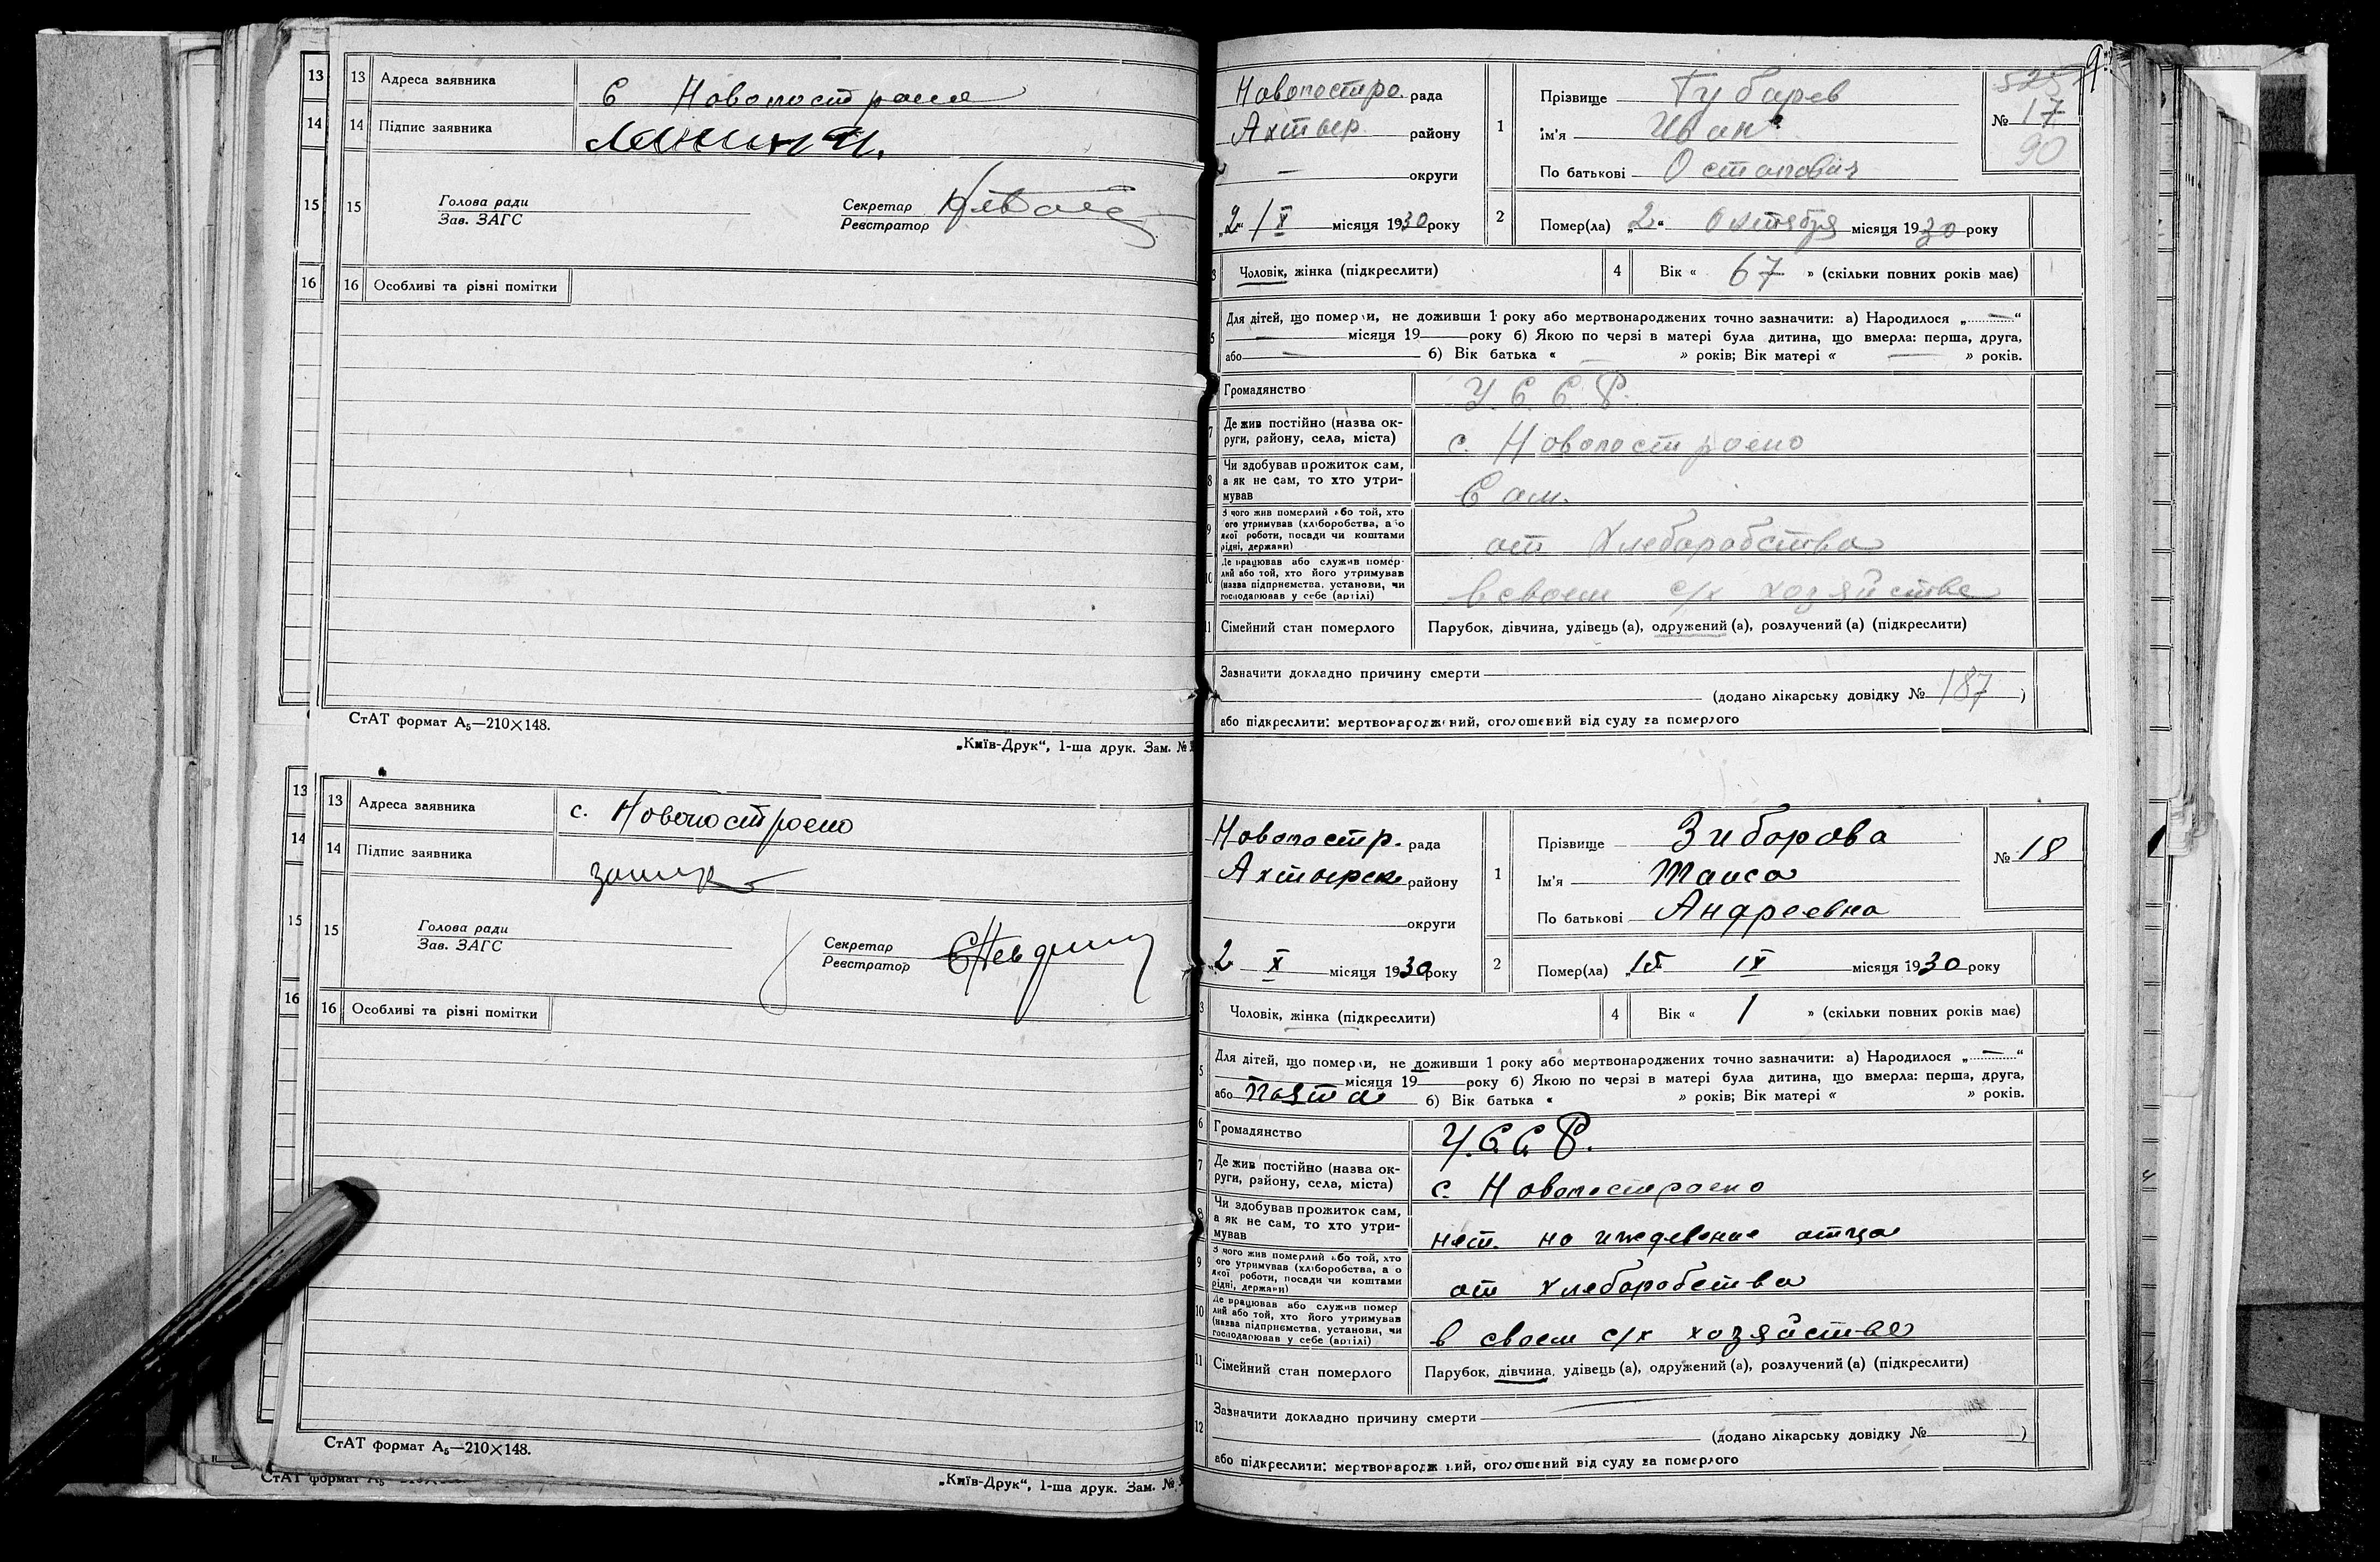 13 Адреса заявника С Новопостроено
14 Підпис заявника
15
Голова ради
Зав. ЗАГС
Секретар
Реєстратор
16 Особливі та різні помітки
СтАТ формат А₅—210×148.
„Київ-Друк“, 1-ша друк. Зам. №
13 Адреса заявника с. Новопостроено
14 Підпис заявника
15
Голова ради
Зав. ЗАГС
Секретар
Реєстратор
16 Особливі та різні помітки
СтАТ формат А₅—210×148.
„Київ-Друк“, 1-ша друк. Зам. №
9
Новопостро. рада
Ахтыр району
— округи
„2“ /X місяця 1930 року
1
Прізвище Губарев
Ім'я Иван
По батькові Остапович
525
№ 17
90
2 Помер(ла) „2“ Октября місяця 1930 року
3 Чоловік, жінка (підкреслити)
4 Вік « 67 » (скільки повних років має)
Для дітей, що померли, не доживши 1 року або мертвонароджених точно зазначити: а) Народилося „—“
— місяця 19 року б) Якою по черзі в матері була дитина, що вмерла: перша, друга,
або — б) Вік батька « — » років; Вік матері « — » років.
Громадянство У.С.С.Р.
7 Де жив постійно (назва ок-
руги, району, села, міста) с. Новопостроено
8 Чи здобував прожиток сам,
а як не сам, то хто утри-
мував Сам.
9 З чого жив померлий або той, хто
його утримував (хліборобства, або
якої роботи, посади чи коштами
рідні, держави) от хлеборобства
10 Де працював або служив помер-
лий або той, хто його утримував
(назва підприємства, установи, чи
господарював у себе (артілі) в своем с/х хозяйстве
11 Сімейний стан померлого Парубок, дівчина, удівець (а), одружений (а), розлучений (а) (підкреслити)
Зазначити докладно причину смерти
(додано лікарську довідку № 187)
або підкреслити: мертвонароджений, оголошений від суду за померлого
Новопостр. рада
Ахтырск району
округи
„2 X місяця 1930 року
1
Прізвище Зиборова
Ім'я Таиса
По батькові Андреевна
№ 18
2 Помер(ла) „15 IX місяця 1930 року
3 Чоловік, жінка (підкреслити)
4 Вік « 1 » (скільки повних років має)
5 Для дітей, що померли, не доживши 1 року або мертвонароджених точно зазначити: а) Народилося „—“
місяця 19 року б) Якою по черзі в матері була дитина, що вмерла: перша, друга,
або пята б) Вік батька « » років; Вік матері « » років.
6 Громадянство У.С.С.Р.
7 Де жив постійно (назва ок-
руги, району, села, міста) с. Новопостроено
8 Чи здобував прожиток сам,
а як не сам, то хто утри-
мував нет. на иждевение отца
9 З чого жив померлий або той, хто
його утримував (хліборобства, або
якої роботи, посади чи коштами
рідні, держави) от хлеборобства
10 Де працював або служив помер
лий або той, хто його утримував
(назва підприємства, установи, чи
господарював у себе (артілі) в своем с/х хозяйстве
11 Сімейний стан померлого Парубок, дівчина, удівець (а), одружений (а), розлучений (а) (підкреслити)
12 Зазначити докладно причину смерти
(додано лікарську довідку № )
або підкреслити: мертвонароджений, оголошений від суду за померлого